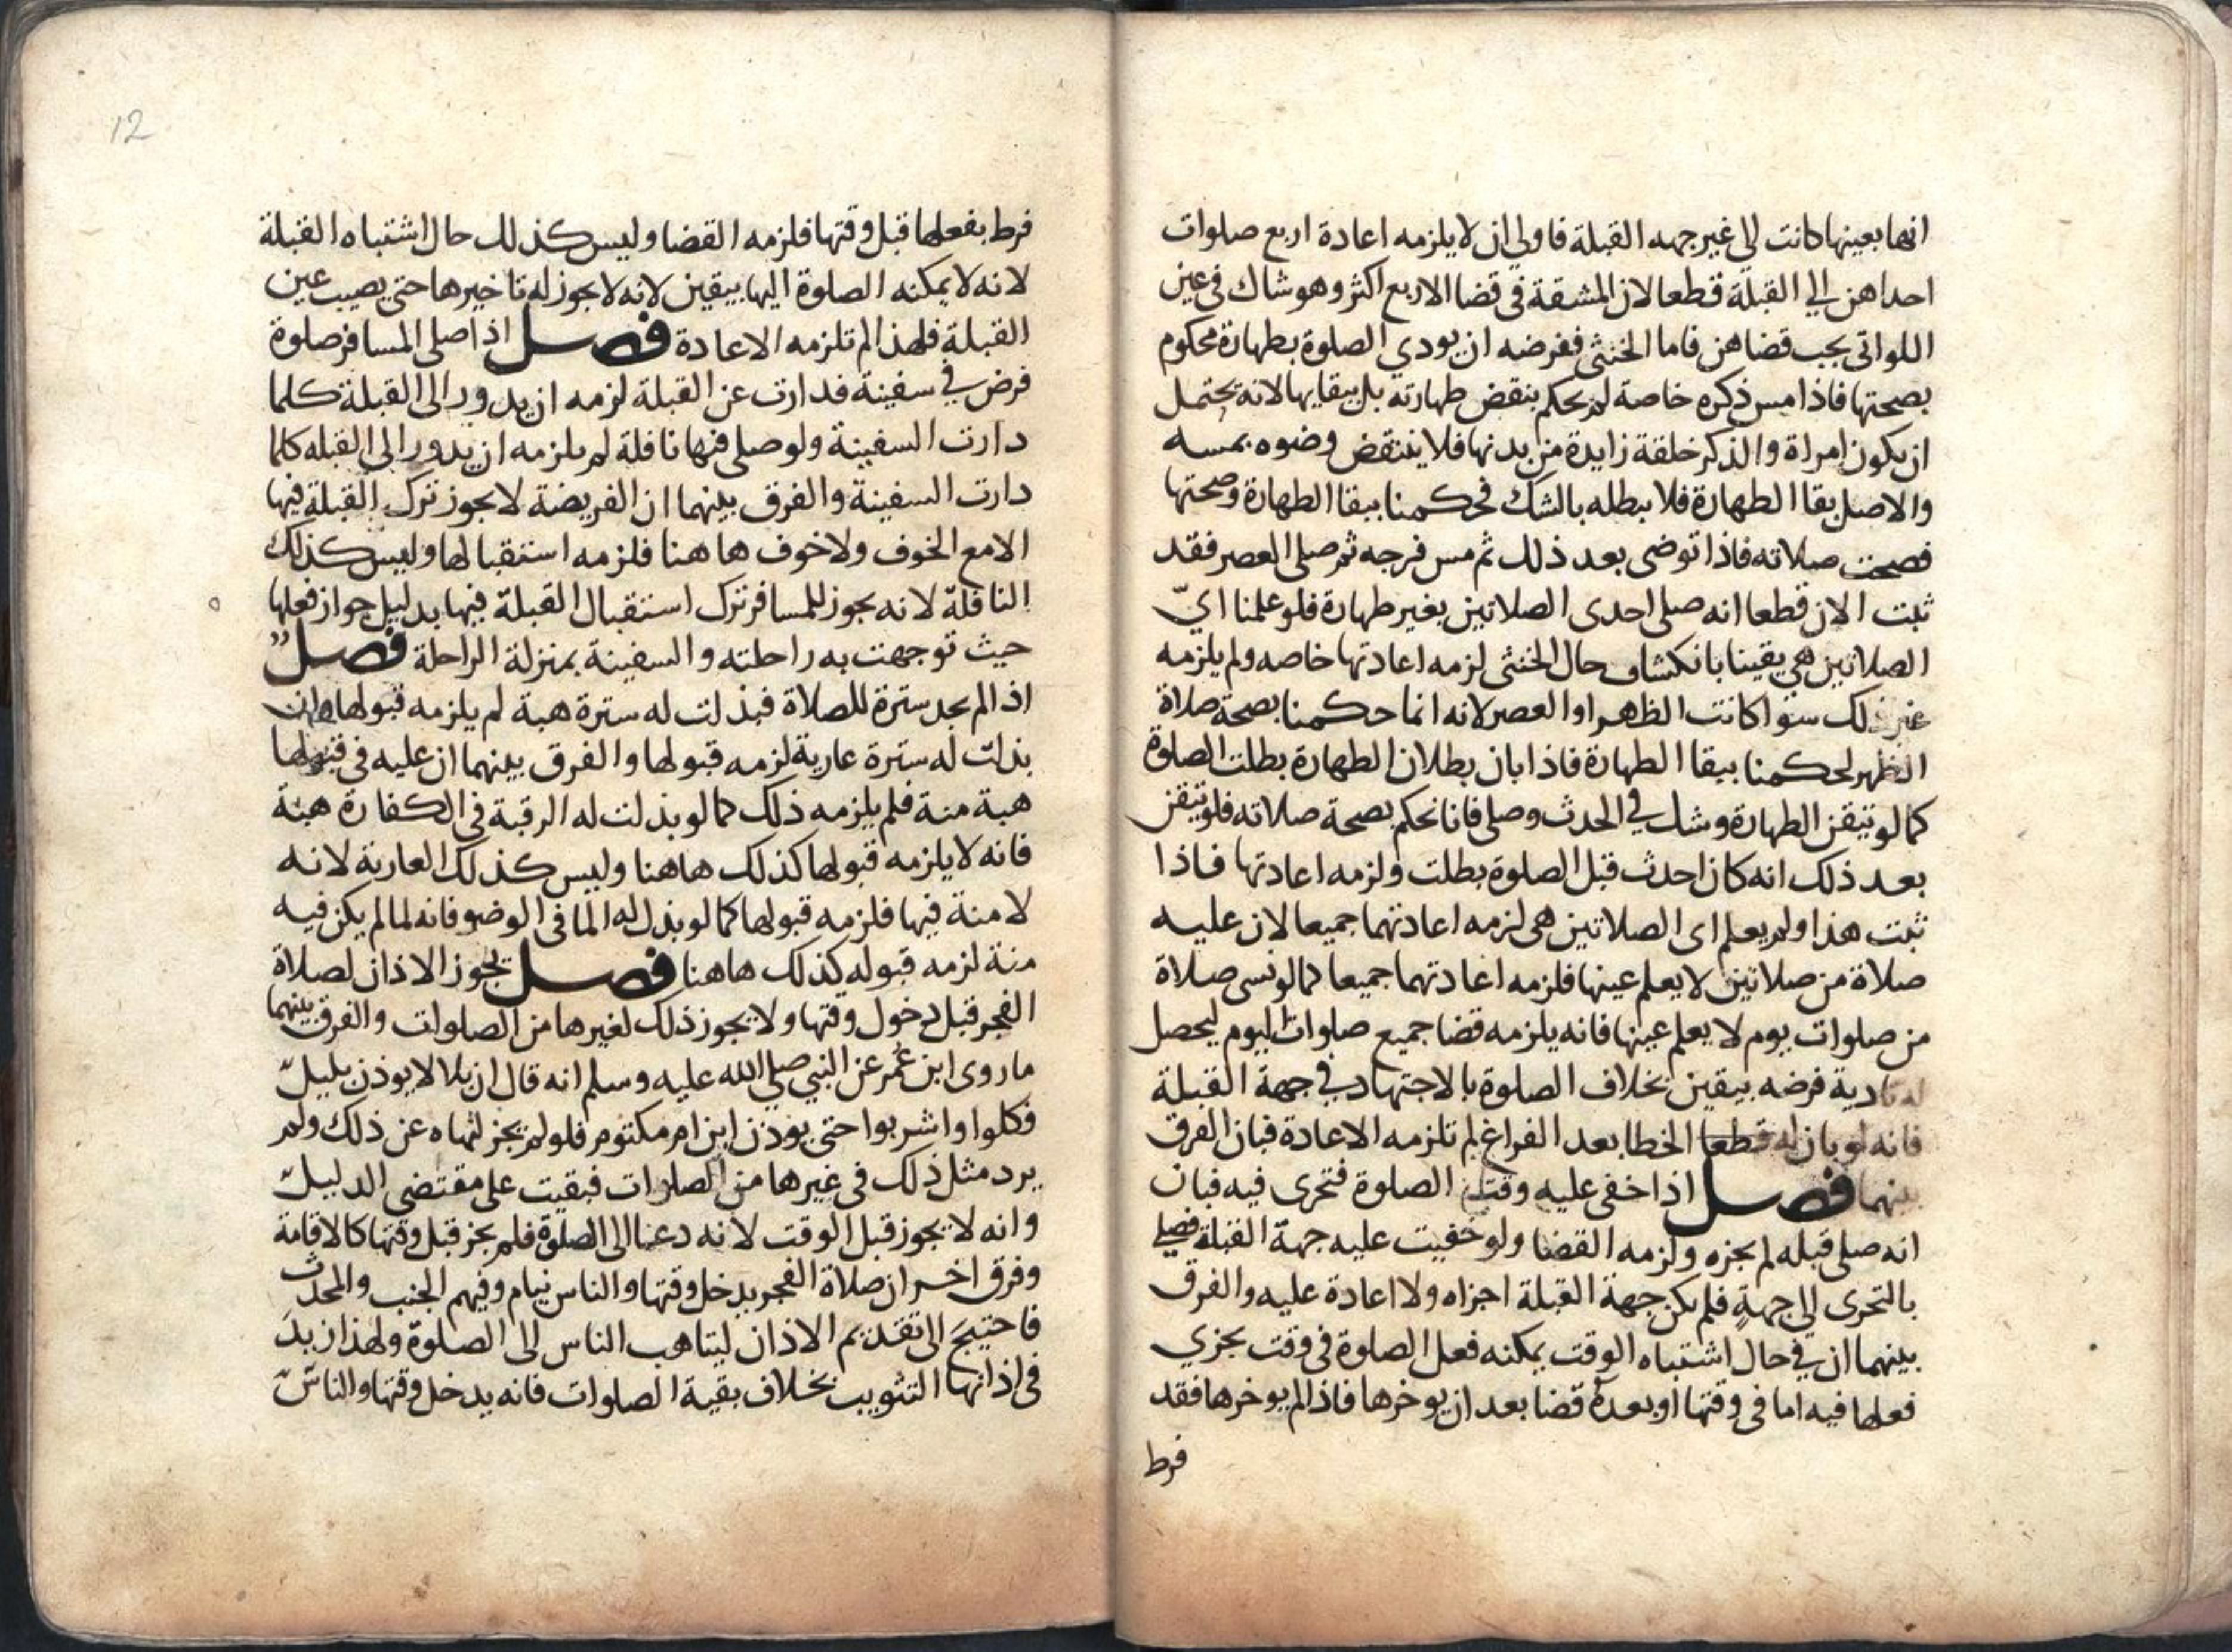 انها بعينها كانت الى غير جهه القبلة فاولى ان لا يلزمه اعادة اربع صلوات
احداهن الي القبلة قطعا لان المشقة في قضا الاربع اكثر وهو شاك في عين
اللواتي يجب قضاهن فاما الخنثى ففرضه ان يودي الصلوة بطهارة محكوم
بصحتها فاذا مس ذكره خاصة لم يحكم بنقض طهارته بل ببقايها لانه يحتمل
ان يكون امراة والذكر خلقة زايدة من بدنها فلا ينتقض وضوه بمسه
والاصل بقا الطهارة فلا يبطله بالشك فحكمنا ببقا الطهارة وصحتها
فصحت صلاته فاذا توضى بعد ذلك ثم مس فرجه ثم صلى العصر فقد
ثبت الان قطعا انه صلى احدى الصلاتين بغير طهارة فلو علمنا ايّ
الصلاتين هي يقينا بانكشاف حال الخنثى لزمه اعادتها خاصه ولم يلزمه
غير ذلك سوا كانت الظهر او العصر لانه انما حكمنا بصحة صلاة
الظهر لحكمنا ببقا الطهارة فاذا بان بطلان الطهارة بطلت الصلوة
كما لو تيقن الطهارة وشك في الحدث وصلى فانا نحكم بصحة صلاته فلو تيقن
بعد ذلك انه كان احدث قبل الصلوة بطلت ولزمه اعادتها فاذا
ثبت هذا ولم يعلم اى الصلاتين هى لزمه اعادتهما جميعا لان عليه
صلاة من صلاتين لا يعلم عينها فلزمه اعادتهما جميعا كما لو نسى صلاة
من صلوات يوم لا يعلم عينها فانه يلزمه قضا جميع صلوات اليوم ليحصل
له تادية فرضه بيقين بخلاف الصلوة بالاجتهاد في جهة القبلة
فانه لو بان له قطعا الخطا بعد الفراغ لم تلزمه الاعادة فبان الفرق
بينهما فصل اذا خفى عليه وقت الصلوة فتحرى فيه فبان
انه صلى قبله لم يجزه ولزمه القضا ولو خفيت عليه جهة القبلة فصلى
بالتحرى الى جهةٍ فلم يكن جهة القبلة اجزاه ولا اعادة عليه والفرق
بينهما ان في حال اشتباه الوقت يمكنه فعل الصلوة فى وقت يجزي
فعلها فيه اما فى وقتها او بعده قضا بعد ان يوخرها فاذا لم يوخرها فقد
فرط
12
فرط بفعلها قبل وقتها فلزمه القضا وليس كذلك حال اشتباه القبلة
لانه لا يمكنه الصلوة اليها بيقين لانه لا يجوز له تاخيرها حتى يصيب عين
القبلة فلهذا لم تلزمه الاعادة فصل اذا صلى المسافر صلوة
فرض في سفينة فدارت عن القبلة لزمه ان يدور الى القبلة كلما
دارت السفينة ولو صلى فيها نافلة لم يلزمه ان يدور الى القبله كلما
دارت السفينة والفرق بينهما ان الفريضة لا يجوز ترك القبلة فيها
الا مع الخوف ولا خوف ها هنا فلزمه استقبالها وليس كذلك
النافلة لانه يجوز للمسافر ترك استقبال القبلة فيها بدليل جواز فعلها
حيث توجهت به راحلته والسفينة بمنزلة الراحلة فصل
اذا لم يجد سترة للصلاة فبذلت له سترة هبة لم يلزمه قبولها وان
بذلت له سترة عارية لزمه قبولها والفرق بينهما ان عليه فى قبولها
هبة منة فلم يلزمه ذلك كما لو بذلت له الرقبة في الكفارة هبة
فانه لا يلزمه قبولها كذلك هاهنا وليس كذلك العارية لانه
لا منة فيها فلزمه قبولها كما لو بذل له الما فى الوضو فانه لما لم يكن فيه
منة لزمه قبوله كذلك هاهنا فصل يجوز الاذان لصلاة
الفجر قبل دخول وقتها ولا يجوز ذلك لغيرها من الصلوات والفرق بينهما
ما روى ابن عُمر عن النبي صلى الله عليه وسلم انه قال ان بلالا يوذن بليل
فكلوا واشربوا حتى يوذن ابن ام مكتوم فلو لم يجز لنهاه عن ذلك ولم
يرد مثل ذلك فى غيرها من الصلوات فبقيت على مقتضى الدليل
وانه لا يجوز قبل الوقت لانه دعا الى الصلوة فلم يجز قبل وقتها كالاقامة
وفرق اخر ان صلاة الفجر يدخل وقتها والناس نيام وفيهم الجنب والمحدث
فاحتيجَ الى تقديم الاذان ليتاهب الناس الى الصلوة ولهذا زيدَ
فى اذانها التثويب بخلاف بقية الصلوات فانه يدخل وقتها والناس